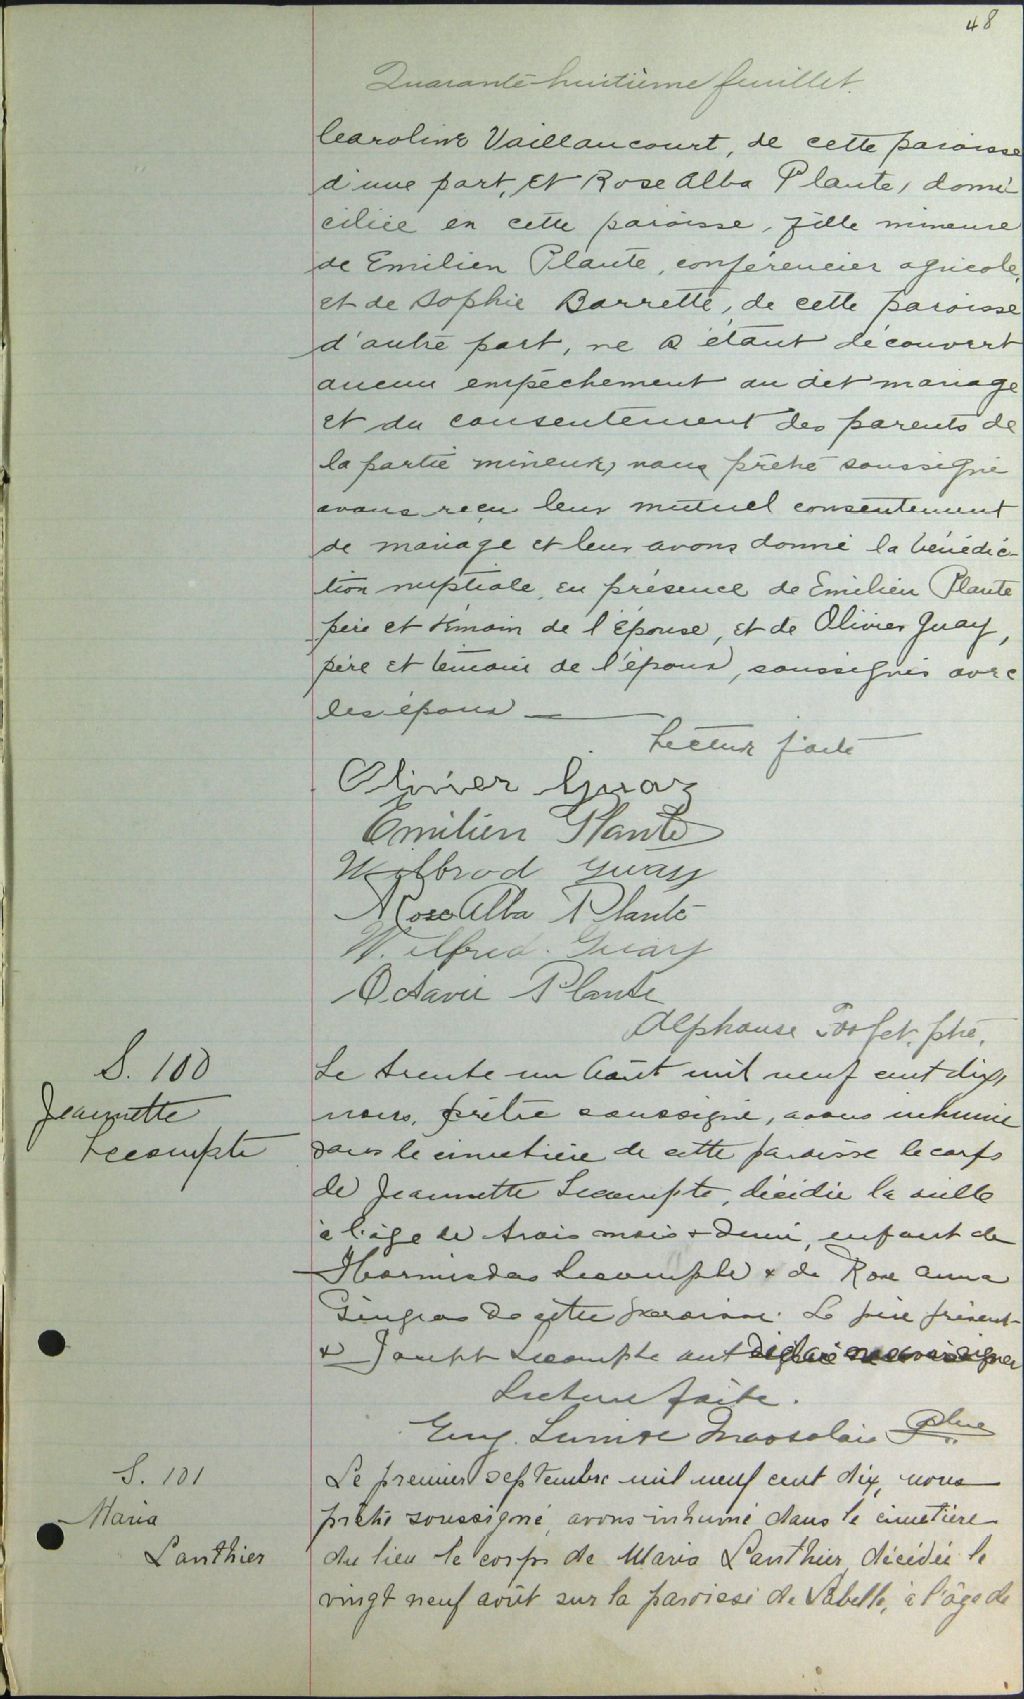 48
Quarante-huitième feuillet.
Caroline Vaillancourt, de cette paroisse
d'une part, et Rose Alba Plante, domi-
ciliée en cette paroisse, fille mineure
de Emilien Plante, conférencier agricole,
et de Sophie Barrette, de cette paroisse
d'autre part, ne s'étant découvert
aucun empêchement au dit mariage
et du consentement des parents de
la partie mineure, nous prêtre soussigné
avons reçu leur mutuel consentement
de mariage et leur avons donné la bénédic-
tion nuptiale, en présence de Emilien Plante
père et témoin de l'épouse, et de Olivier Guay,
père et témoin de l'époux, soussignés avec
les époux
Lecture faite
Olivier Guay
Emilien Plante
Wilbrod Guay
Rose Alba Plante
Wilfrid Guay
Octavie Plante
Alphonse ptre.
S. 100
Jeannette
Lecompte
Le trente un Août mil neuf cent dix,
nous, prêtre soussigné, avons inhumé
dans le cimetière de cette paroisse le corps
de Jeannette Lecompte, décédée la veille
à l'âge de trois mois & demi, enfant de
Hormisdas Lecompte & de Rose Anna
Gingras de cette paroisse. Le père présent
& Joseph Lecompte ont déclaré ne savoir signer
Lecture faite.
Eug. Massolais Ptre
S. 101
Maria
Lanthier
Le premier septembre mil neuf cent dix, nous
prêtre soussigné, avons inhumé dans le cimetière
du lieu le corps de Maria Lanthier, décédée le
vingt neuf août sur la paroisse de Labelle, à l'âge de